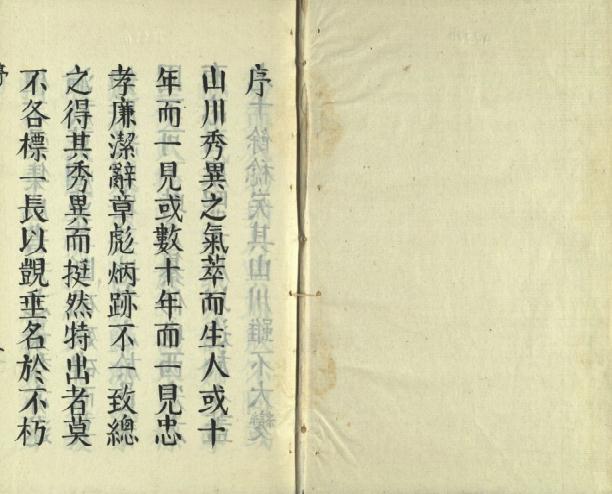 序
山川秀異之氣萃而生人或十
年而一見或數十年而一見忠
孝廉潔辭章彪炳跡不一致總
之得其秀異而挺然特出者莫
不各標一長以覬垂名於不朽